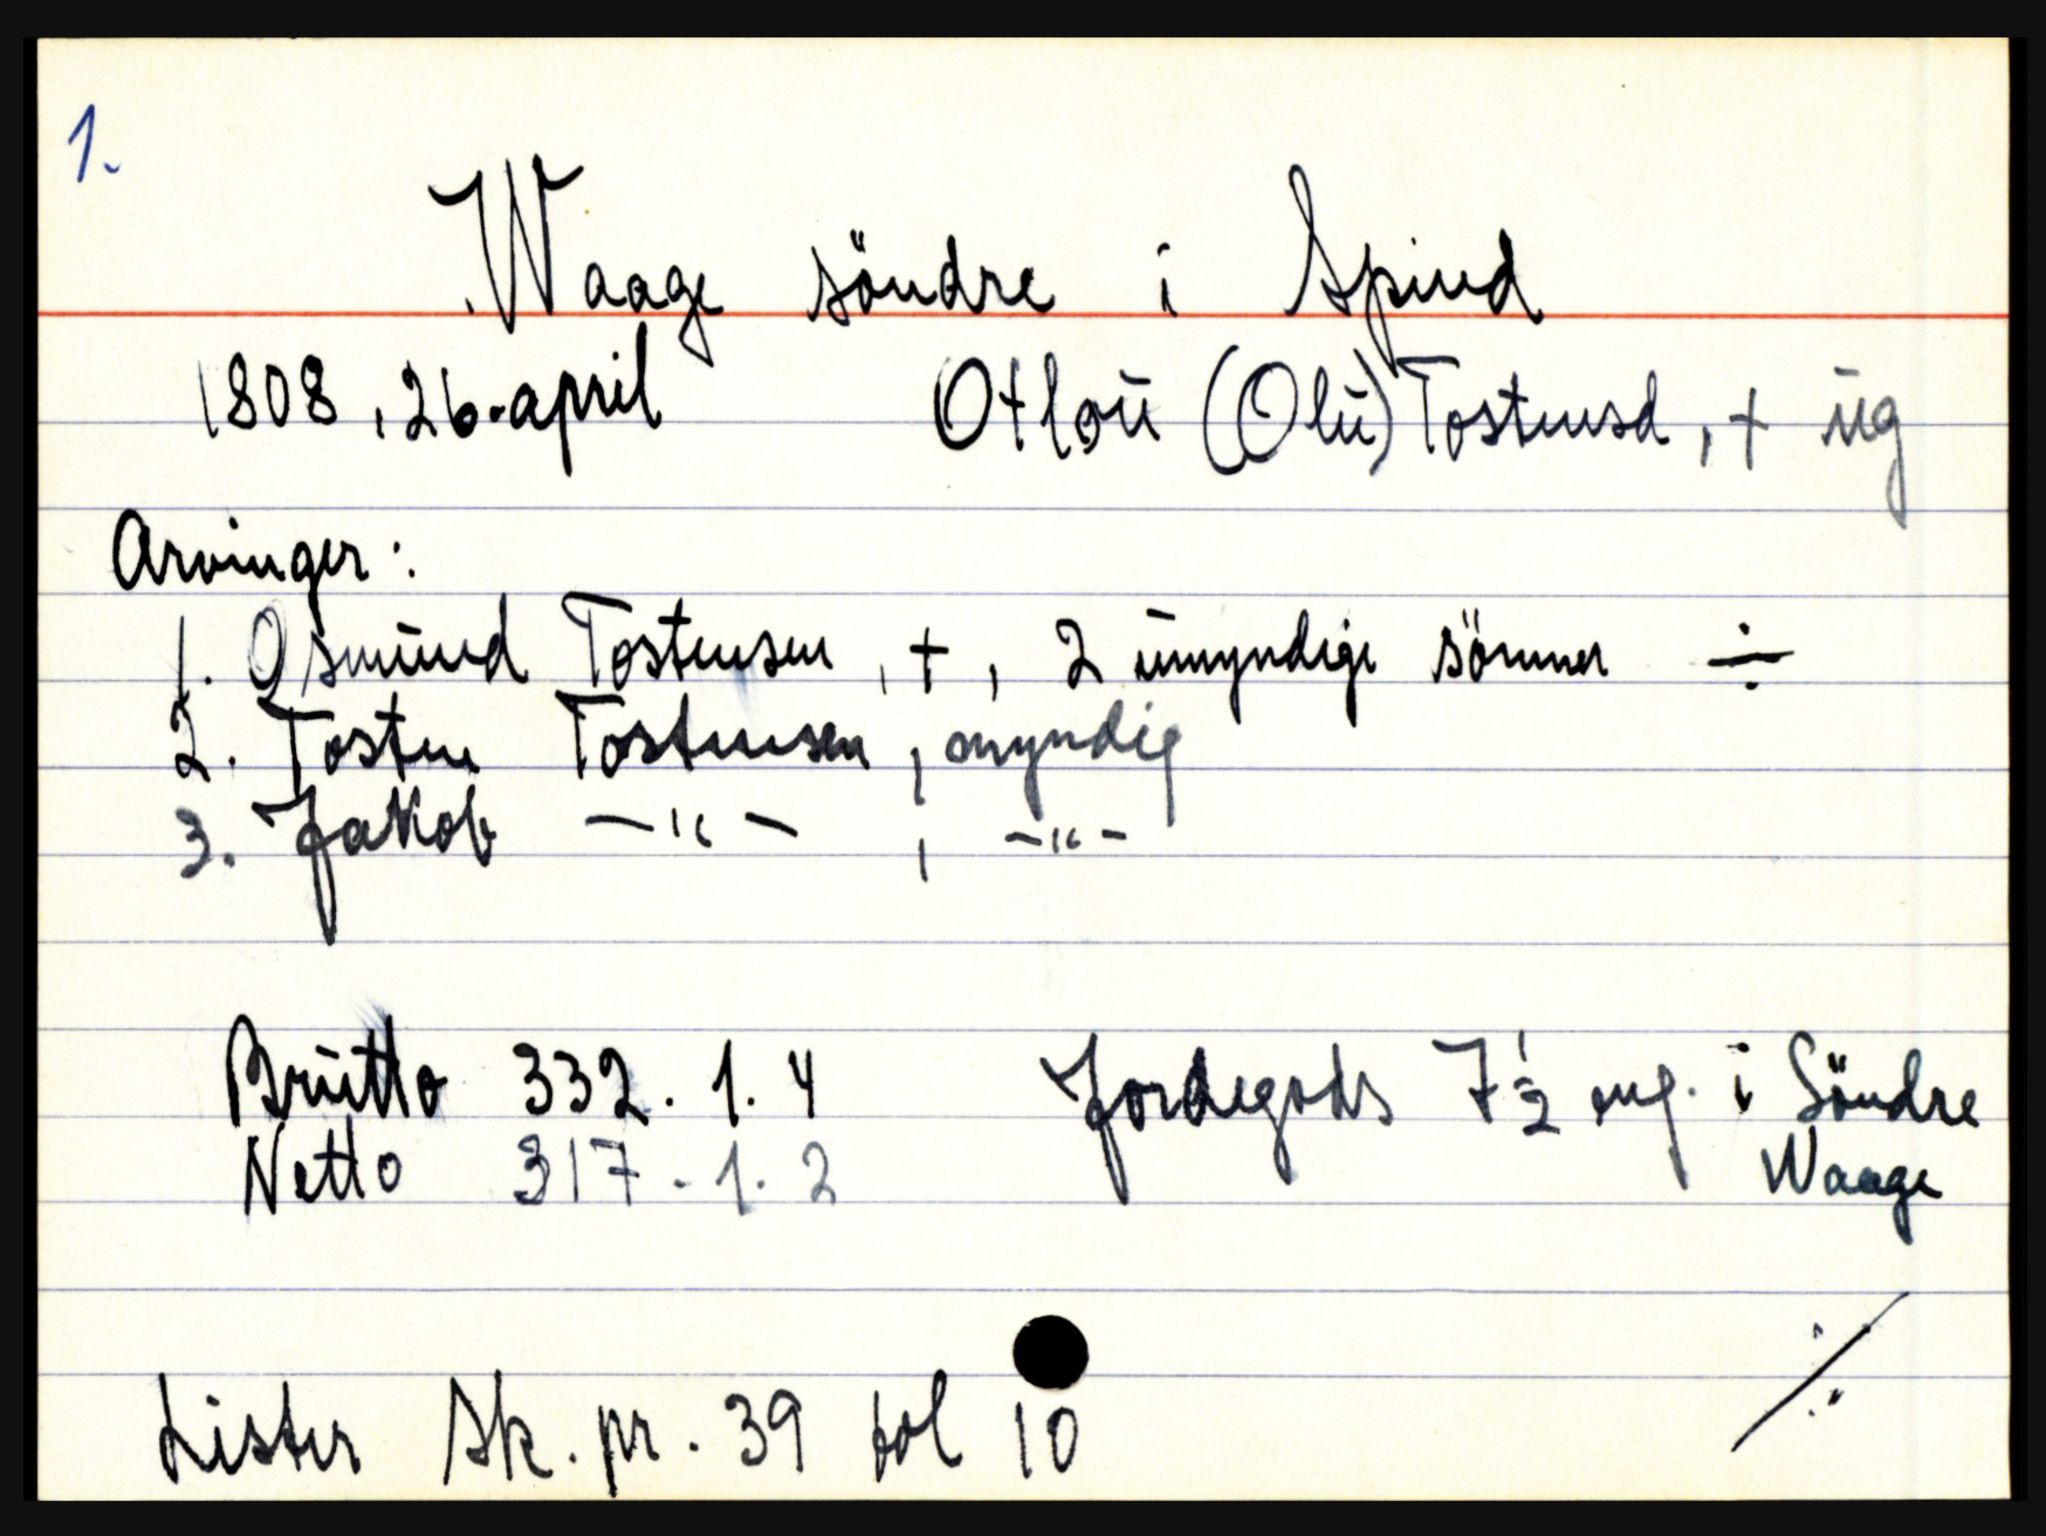 1.
Waage söndre i Spind
1808, 26. april Otlou (Olu) Tostensd, + ug
Arvinger:
1. Osmund Tostensen, +, 2 umyndige sönner ÷
2. Tosten Tostensen, myndig
3. Jakob —"— , —"—
Brutto 332. 1. 4 Jordegods 7½ eng. i Söndre
Netto 317. 1. 2 Waage
Lister sk. pr. 39 fol 10 ./.